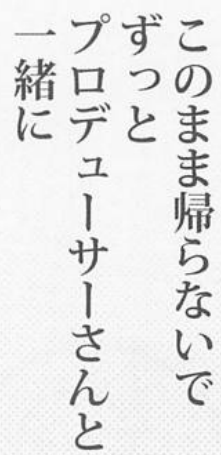 このまま帰らないで
ずっと
プロデューサーさんと
一緒に